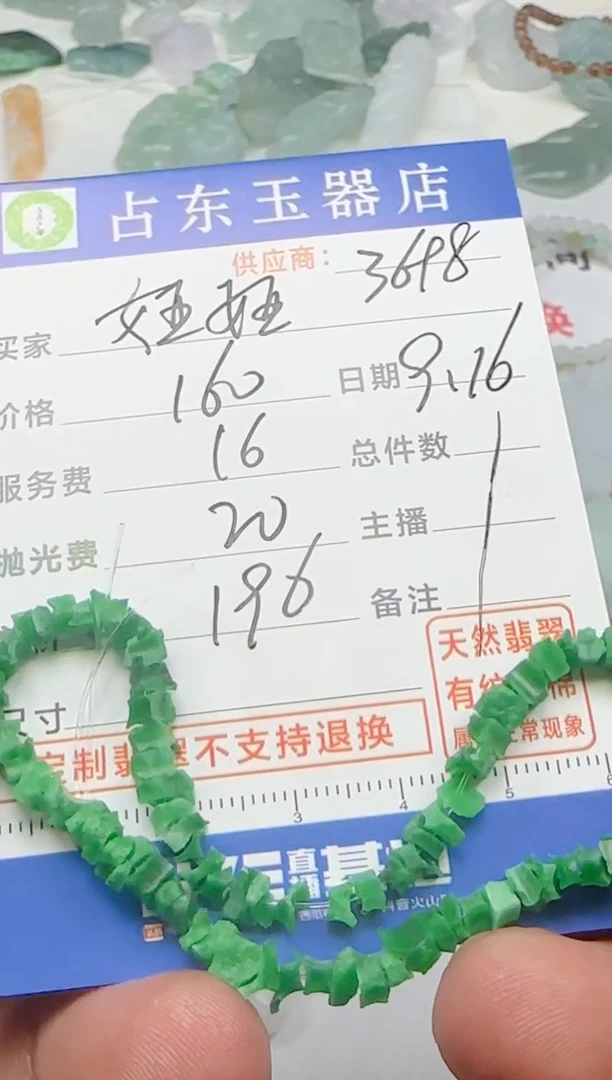 占东玉器店
供应商: 3698
买家
价格 160 日期 9.16
服务费 16 总件数 1
抛光费 20 主播
196 备注
尺寸
天然翡翠
有纹 棉
属 正常现象
定制翡翠不支持退换
3 4 5 6
直播基地